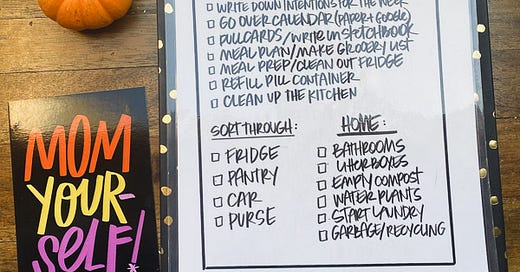 WRITE DOWN INTENTIONS FOR THE WEEK
GO OVER CALENDAR (PAPER + GOOGLE)
PULL CARDS/WRITE IN SKETCHBOOK
MEAL PLAN/MAKE GROCERY LIST
MEAL PREP/CLEAN OUT FRIDGE
REFILL PILL CONTAINER
CLEAN UP THE KITCHEN
SORT THROUGH:
FRIDGE
PANTRY
CAR
PURSE
HOME:
BATHROOMS
LITTER BOXES
EMPTY COMPOST
WATER PLANTS
START LAUNDRY
GARBAGE/RECYCLING
MOM
YOUR-
SELF!